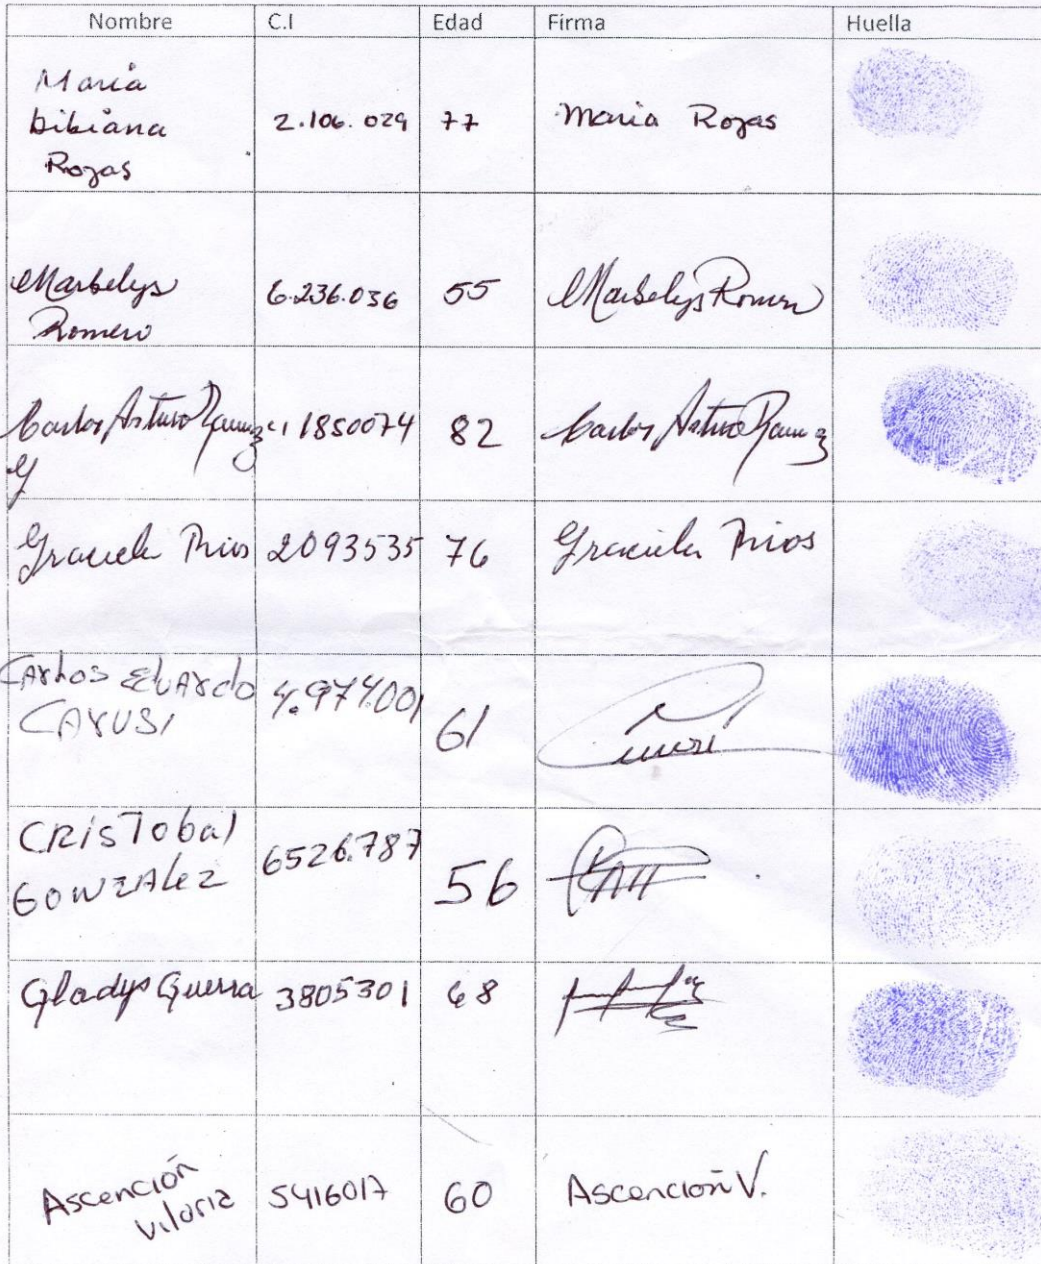 Nombre C.I Edad Firma Huella
Maria
bibiana
Rojas
2.106.029 77 Maria Rojas
Marbelys
Romero
6.236.036 55 Marbelys Romero
Carlos Arturo Ramirez
G
C.I 1850074 82 Carlos Arturo Ramirez
Graciela Rios 2093535 76 Graciela Rios
CARLOS EduARdo
CARUSI
4.974.001 61
CRISTobal
GONZALez
6526.787 56
Gladys Guerra 3805301 68
Ascención
Viloria
5416017 60 Ascención V.